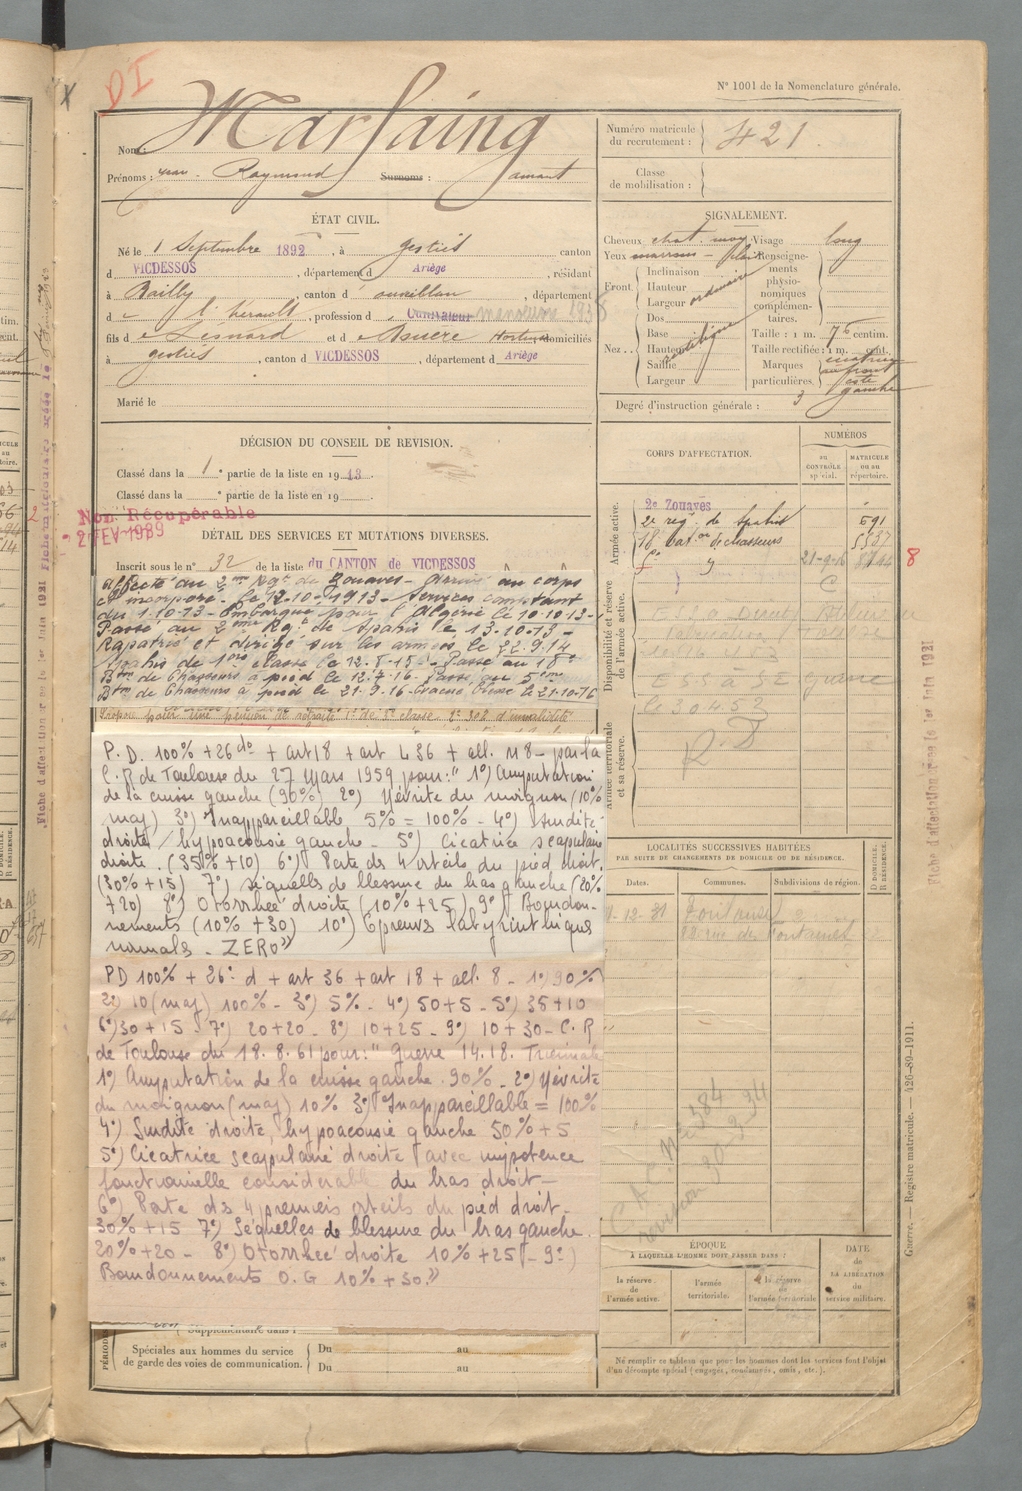 DI
N° 1001 de la Nomenclature générale.
Nom : Marfaing
Prénoms : Jean - Raymond Surnoms : Amant
Numéro matricule du recrutement : 421
Classe de mobilisation :
ÉTAT CIVIL.
Né le 1 Septembre 1892, à Gestiès canton
d VICDESSOS, département d Ariège, résidant
à Bailly, canton d , département
d e l'hérault, profession d Cultivateur
fils d e Léonard et d e domiciliés
à gestiès, canton d VICDESSOS, département d Ariège
Marié le
SIGNALEMENT.
Cheveux chat. moy Visage long
Yeux marrons
Front Inclinaison
Hauteur ordinaire
Largeur
Nez Dos
Base
Hauteur
Saillie
Largeur
Renseignements physionomiques complémentaires.
Taille : 1 m. 76 centim.
Taille rectifiée : 1 m. cent.
Marques particulières. cicatrice au front côté gauche
Degré d'instruction générale : 3
DÉCISION DU CONSEIL DE REVISION.
Classé dans la 1e partie de la liste en 1913
Classé dans la e partie de la liste en 19
Non Récupérable
2 FEV 1939
DÉTAIL DES SERVICES ET MUTATIONS DIVERSES.
Inscrit sous le n° 32 de la liste du CANTON de VICDESSOS
Affecté au 2me Rgt de Zouaves - Arrivé au corps
et incorporé - le 12-10-1913 - Services comptant
du 1.10-13 - Embarqué pour l'Algérie le 10-10-13 -
Passé au 2me Rgt de Spahis le 13-10-13 -
Rapatrié et dirigé sur les armées le 22.9.14
Spahis de 1ère classe le 12-5-15 - Passé au 18e
Btn de Chasseurs à pied le 12-7-16 - Passé au 5eme
Btn de Chasseurs à pied le 21-9-16 - Evacué blessé le 21-10-16
Proposé pour une pension de retraite 1° de 5e classe, 2° 302 d'invalidité
P.D. 100% + 26 do + art 18 + art L 36 + all. N 8 - par la
C.R de Toulouse du 27 Mars 1959 pour : " 1°) Amputation
de la cuisse gauche (90%) 2°) Névrite du moignon (10%
maj) 3°) Inappareillable 5% = 100% - 4°) Surdité
droite / hypoacousie gauche - 5°) Cicatrice scapulaire
droite. (35% + 10) 6°) Perte des 4 orteils du pied droit,
(30% + 15) 7°) Séquelles de blessure du bras gauche (20%
+ 20) 8°) Otorrhée droite (10% + 25) 9°) Bourdon-
nements (10% + 30) 10°) Epreuves labyrinthiques
normales - ZERO"
PD 100% + 26° d + art 36 + art 18 + all. 8 - 1°) 90%
2°) 10 (maj) 100% - 3°) 5% - 4°) 50+5 - 5°) 35+10
6°) 30+15 - 7°) 20+20 - 8°) 10+25 - 9°) 10+30 - C.R
de Toulouse du 18.8.61 pour : " Guerre 14.18. Triennale
1°) Amputation de la cuisse gauche. 90% - 2°) Névrite
du moignon (maj) 10% 3°) Inappareillable = 100%
4°) Surdité droite, hypoacousie gauche 50% + 5
5°) Cicatrice scapulaire droite avec impotence
fonctionnelle considérable du bras droit -
6°) Perte des 4 premiers orteils du pied droit -
30% + 15 7°) Séquelles de blessure du bras gauche.
20% + 20 - 8°) Otorrhée droite 10% + 25 - 9°)
Bourdonnements O.G 10% + 30"
Supplémentaire dans
Spéciales aux hommes du service de garde des voies de communication.
Du au
Du au
CORPS D'AFFECTATION.
NUMÉROS
AU CONTRÔLE spécial.
MATRICULE ou au répertoire.
Armée active.
2e Zouaves
2e rég. de Spahis 591
18 baton de chasseurs 5537
5e 21-9-16 8
Disponibilité et réserve de l'armée active.
le 30 4 53
Armée territoriale et sa réserve.
LOCALITÉS SUCCESSIVES HABITÉES
PAR SUITE DE CHANGEMENTS DE DOMICILE OU DE RÉSIDENCE.
Dates. Communes. Subdivisions de région. D DOMICILE. R RÉSIDENCE.
12-31 Toulouse
rue des Fontaines
ÉPOQUE
À LAQUELLE L'HOMME DOIT PASSER DANS :
la réserve de l'armée active.
l'armée territoriale.
la réserve de l'armée territoriale
DATE de LA LIBÉRATION du service militaire.
Ne remplir ce tableau que pour les hommes dont les services font l'objet d'un décompte spécial (engagés, condamnés, omis, etc.).
Guerre. — Registre matricule. — 426-89-1911.